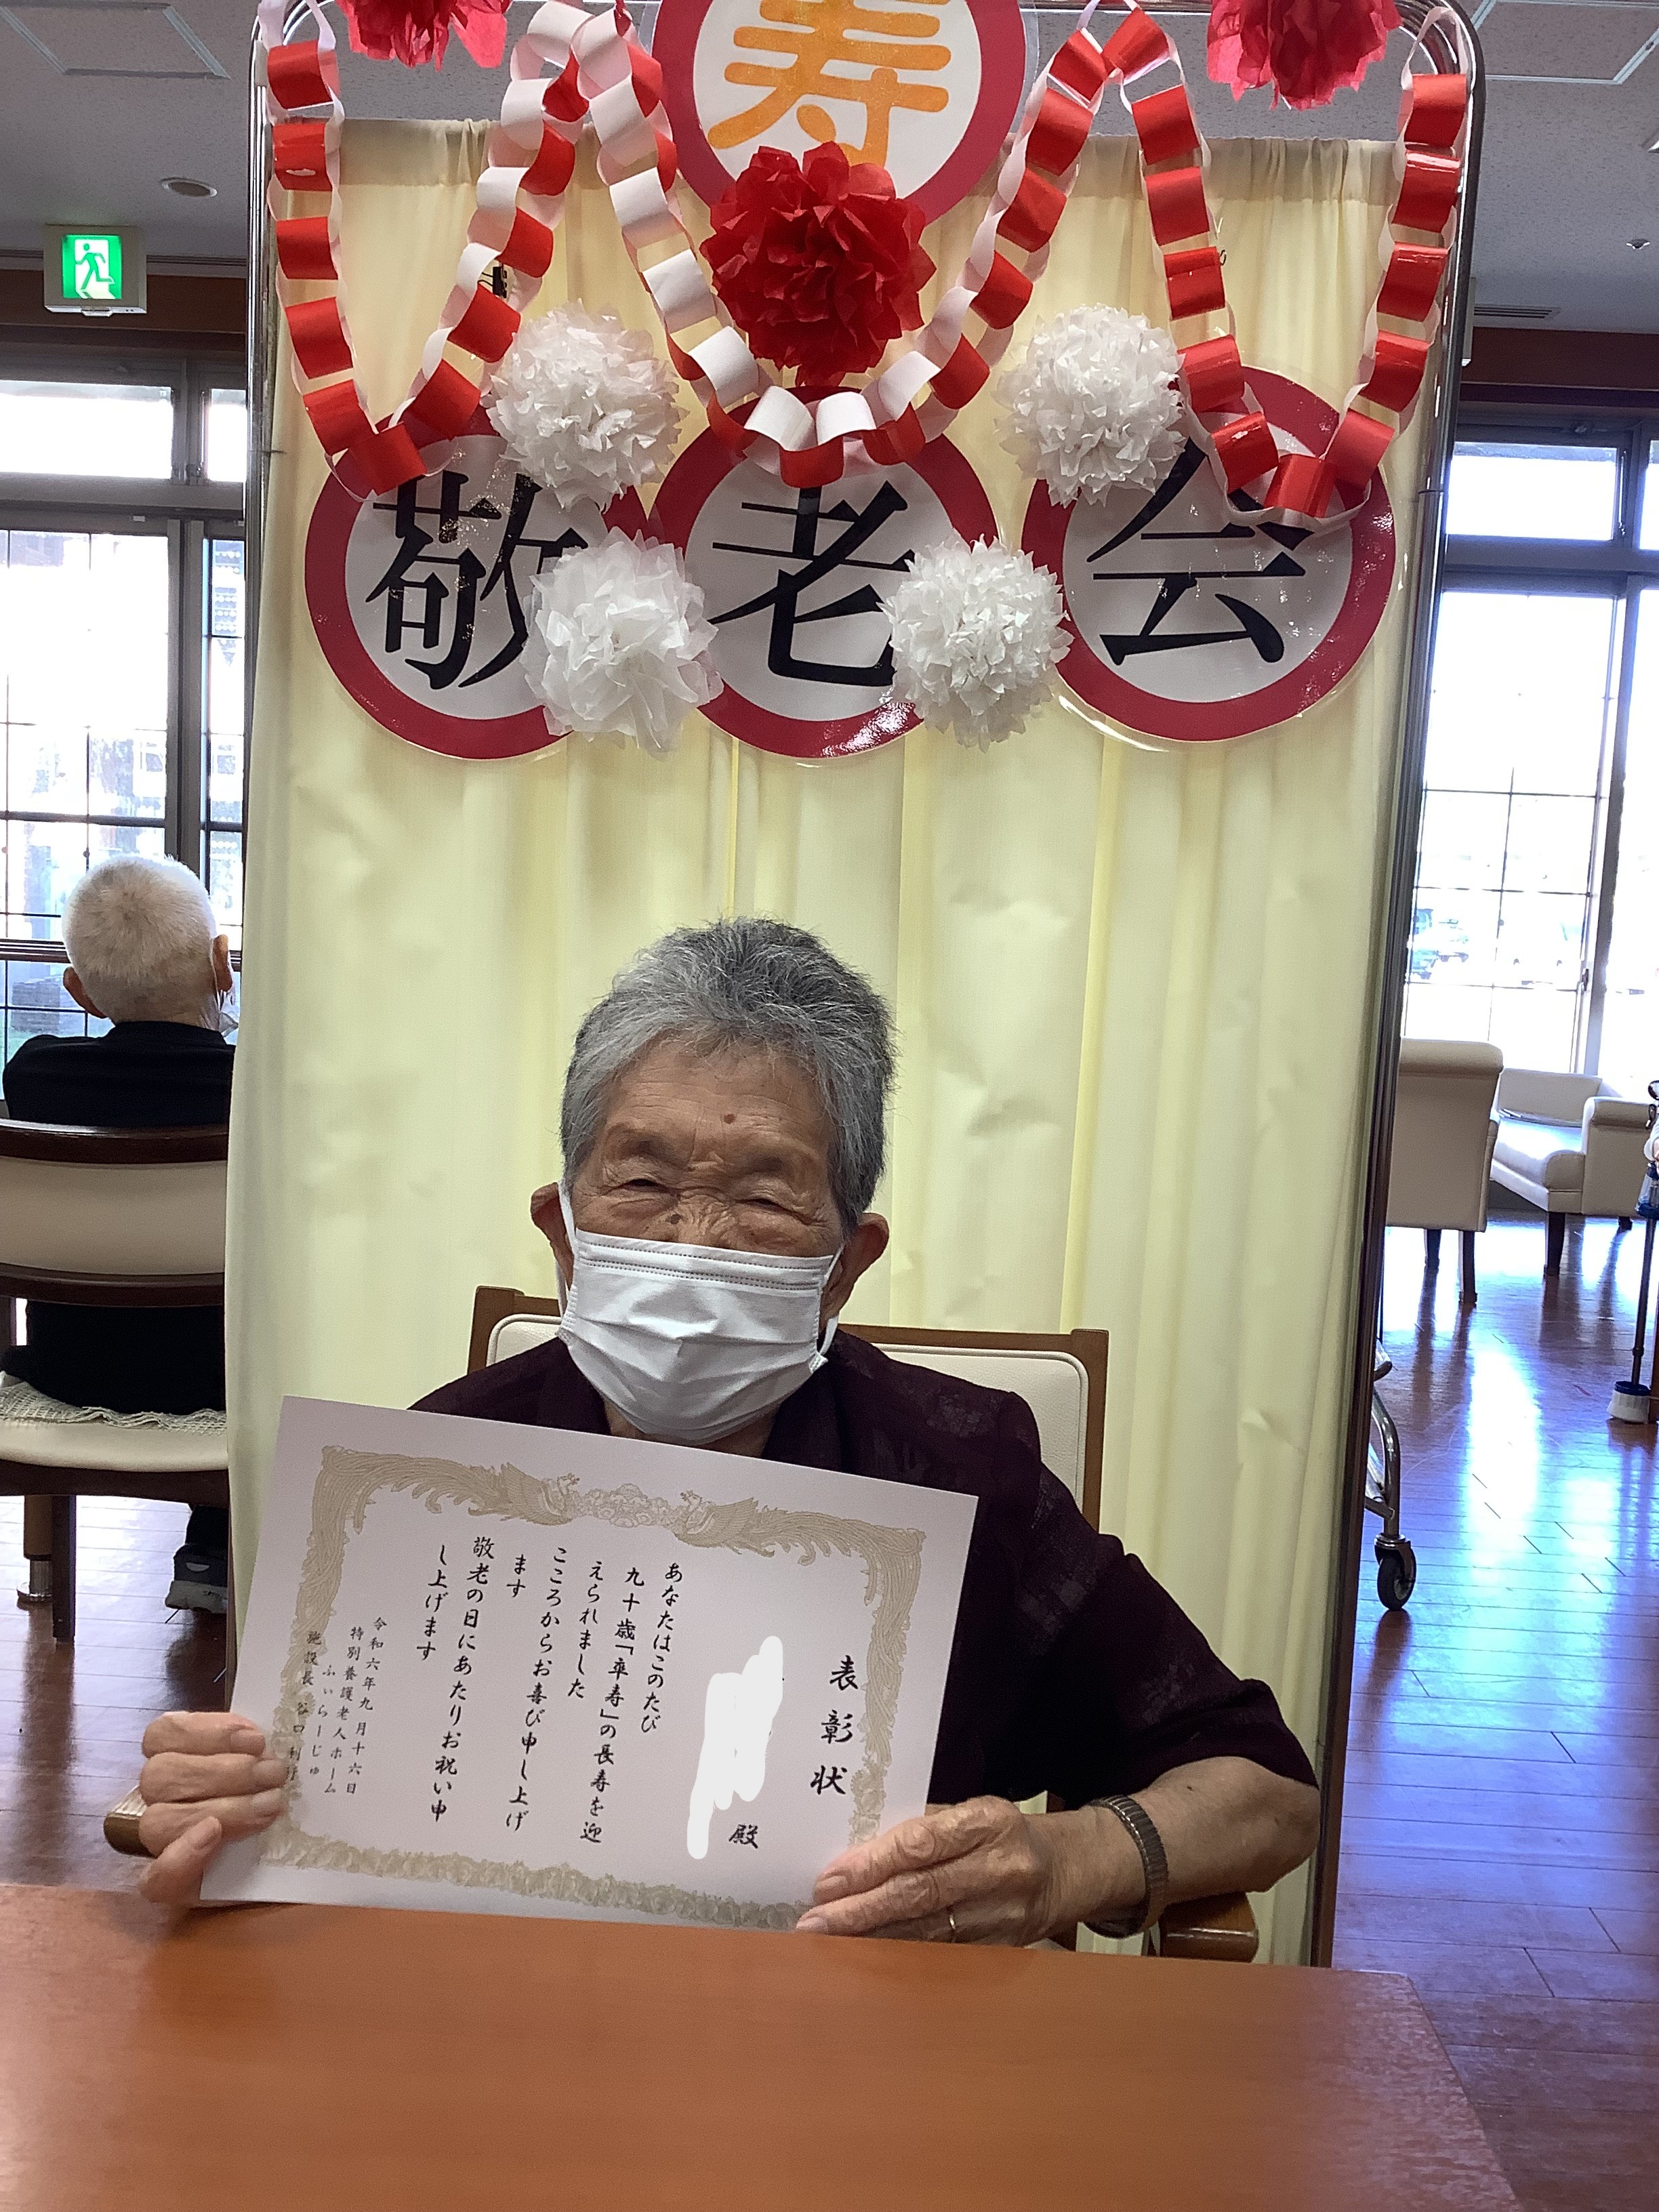 寿
敬老会
表彰状
殿
あなたはこのたび
九十歳「卒寿」の長寿を迎
えられました
こころからお喜び申し上げ
ます
敬老の日にあたりお祝い申
し上げます
令和六年九月十六日
特別養護老人ホーム
ふぃらーじゅ
施設長 谷口利